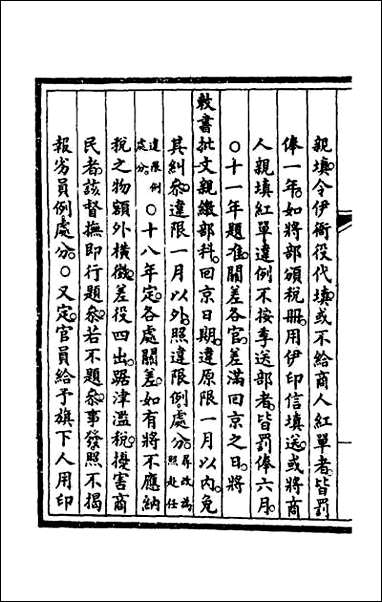 親填令伊衙役代填或不給商人紅單者皆罰
俸一年如將部頒稅冊用伊印信填送或將商
人親填紅單違例不按季送部者皆罰俸六月
○十一年題准關差各官差滿回京之日將
敕書批文親繳部科回京日期違原限一月以內免
其糾參違限一月以外照違限例處分尋改為照赴任
違限例處分○十八年定各處關差如有將不應納
稅之物額外橫徵差役四出踞津濫稅擾害商
民者該督撫即行題參若不題參事發照不揭
報劣員例處分○又定官員給予旗下人用印